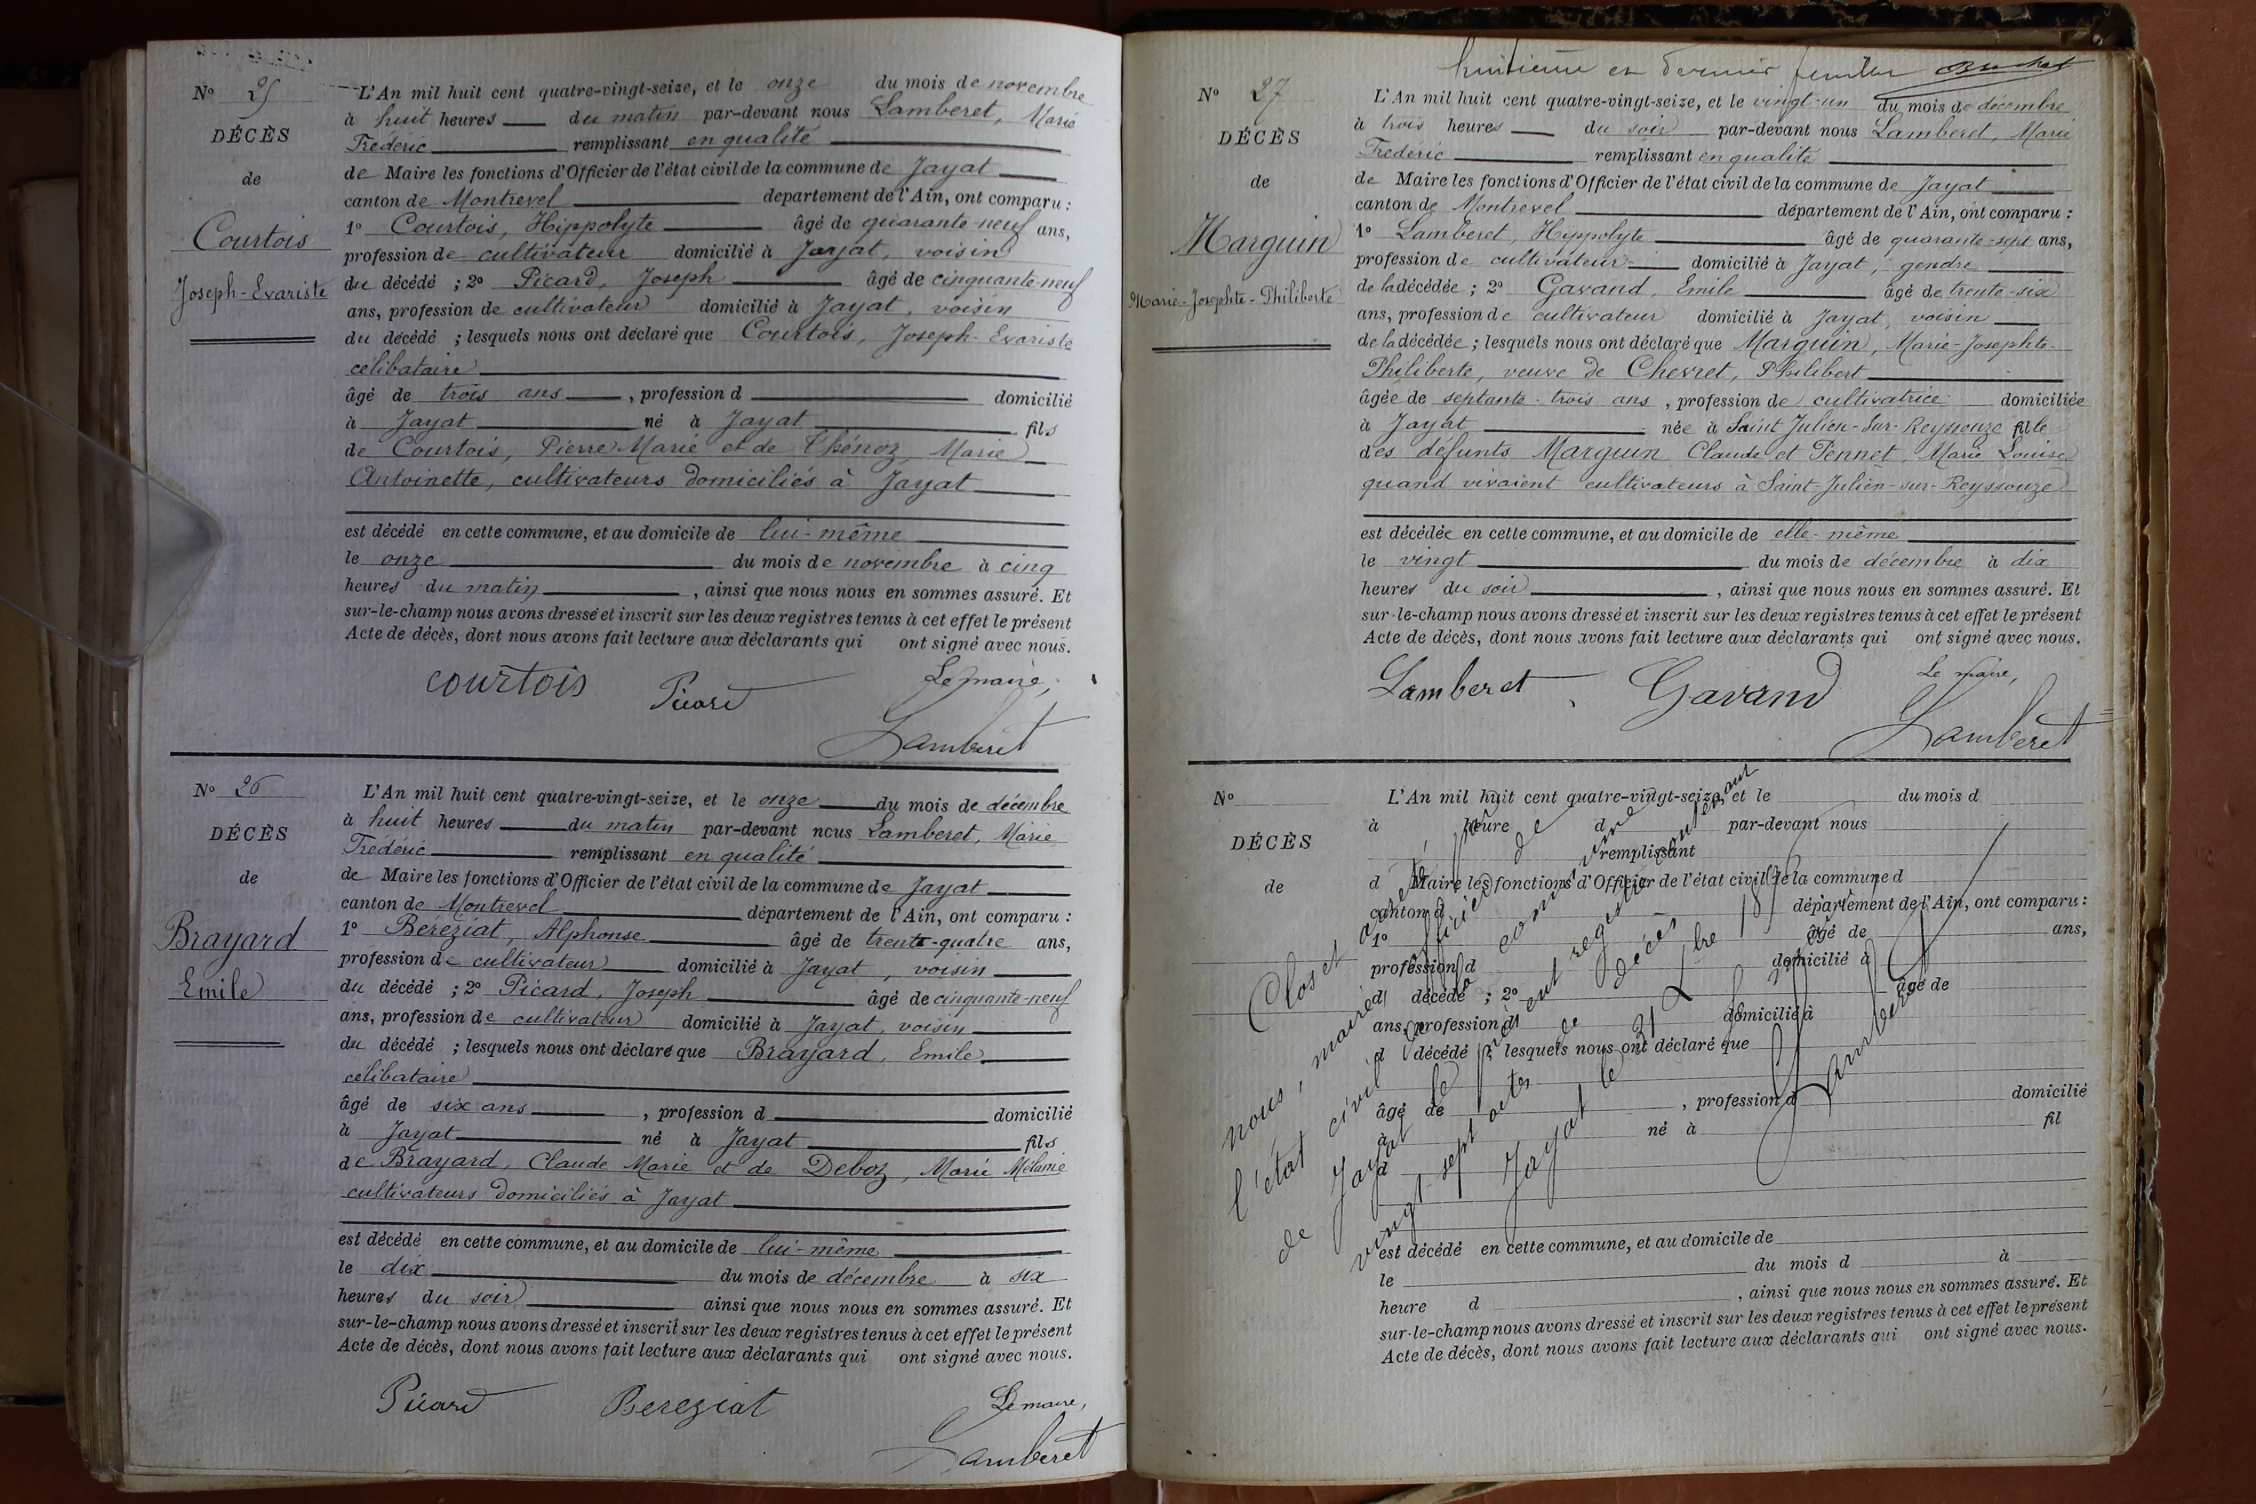 N° 25
DÉCÈS
de
Courtois
Joseph-Evariste
L'An mil huit cent quatre-vingt-seize, et le onze du mois de novembre
à huit heures du matin par-devant nous Lamberet, Marie
Frédéric remplissant en qualité
de Maire les fonctions d'Officier de l'état civil de la commune de Jayat
canton de Montrevel département de l'Ain, ont comparu :
1° Courtois, Hippolyte âgé de quarante-neuf ans,
profession de cultivateur domicilié à Jayat, voisin
du décédé ; 2° Picard, Joseph âgé de cinquante-neuf
ans, profession de cultivateur domicilié à Jayat, voisin
du décédé ; lesquels nous ont déclaré que Courtois, Joseph-Evariste
célibataire
âgé de trois ans, profession d domicilié
à Jayat né à Jayat fils
de Courtois, Pierre Marie et de Thénoz, Marie
Antoinette, cultivateurs domiciliés à Jayat
est décédé en cette commune, et au domicile de lui-même
le onze du mois de novembre à cinq
heures du matin, ainsi que nous nous en sommes assuré. Et
sur-le-champ nous avons dressé et inscrit sur les deux registres tenus à cet effet le présent
Acte de décès, dont nous avons fait lecture aux déclarants qui ont signé avec nous.
Le maire,
courtois Picard
Lamberet
N° 26
DÉCÈS
de
Brayard
Emile
L'An mil huit cent quatre-vingt-seize, et le onze du mois de décembre
à huit heures du matin par-devant nous Lamberet, Marie
Frédéric remplissant en qualité
de Maire les fonctions d'Officier de l'état civil de la commune de Jayat
canton de Montrevel département de l'Ain, ont comparu :
1° Béréziat, Alphonse âgé de trente-quatre ans,
profession de cultivateur domicilié à Jayat, voisin
du décédé ; 2° Picard, Joseph âgé de cinquante-neuf
ans, profession de cultivateur domicilié à Jayat, voisin
du décédé ; lesquels nous ont déclaré que Brayard, Emile
célibataire
âgé de six ans, profession d domicilié
à Jayat né à Jayat fils
de Brayard, Claude Marie et de Deboz, Marie Mélanie
cultivateurs domiciliés à Jayat
est décédé en cette commune, et au domicile de lui-même
le dix du mois de décembre à six
heures du soir ainsi que nous nous en sommes assuré. Et
sur-le-champ nous avons dressé et inscrit sur les deux registres tenus à cet effet le présent
Acte de décès, dont nous avons fait lecture aux déclarants qui ont signé avec nous.
Picard Bereziat Le maire,
Lamberet
huitième et dernier feuillet
N° 27
DÉCÈS
de
Marguin
Marie-Josephte-Philiberte
L'An mil huit cent quatre-vingt-seize, et le vingt-un du mois de décembre
à trois heures du soir par-devant nous Lamberet, Marie
Frédéric remplissant en qualité
de Maire les fonctions d'Officier de l'état civil de la commune de Jayat
canton de Montrevel département de l'Ain, ont comparu :
1° Lamberet, Hippolyte âgé de quarante-sept ans,
profession de cultivateur domicilié à Jayat, gendre
de la décédée ; 2° Gavand, Emile âgé de trente-six
ans, profession de cultivateur domicilié à Jayat, voisin
de la décédée ; lesquels nous ont déclaré que Marguin, Marie-Josephte-
Philiberte, veuve de Chevret, Philibert
âgée de septante-trois ans, profession de cultivatrice domiciliée
à Jayat née à Saint Julien-sur-Reyssouze fille
des défunts Marguin Claude et Pennet, Marie Louise
quand vivaient cultivateurs à Saint-Julien-sur-Reyssouze
est décédée en cette commune, et au domicile de elle-même
le vingt du mois de décembre à dix
heures du soir, ainsi que nous nous en sommes assuré. Et
sur-le-champ nous avons dressé et inscrit sur les deux registres tenus à cet effet le présent
Acte de décès, dont nous avons fait lecture aux déclarants qui ont signé avec nous.
Le maire,
Lamberet Gavand
Lamberet
N°
DÉCÈS
de
L'An mil huit cent quatre-vingt-seize, et le du mois d
à heure d par-devant nous
remplissant
d Maire les fonctions d'Officier de l'état civil de la commune d
canton d département de l'Ain, ont comparu :
1° âgé de ans,
profession d domicilié à
d décédé ; 2° âgé de
ans, profession d domicilié à
d décédé ; lesquels nous ont déclaré que
âgé de , profession d domicilié
à né à fil
d
est décédé en cette commune, et au domicile de
le du mois d à
heure d , ainsi que nous nous en sommes assuré. Et
sur-le-champ nous avons dressé et inscrit sur les deux registres tenus à cet effet le présent
Acte de décès, dont nous avons fait lecture aux déclarants qui ont signé avec nous.
Clos et arrêté par
nous, maire officier de
l'état civil de la commune
de Jayat le présent registre contenant
vingt-sept actes de décès
Jayat le 31 Xbre 189
Lamberet